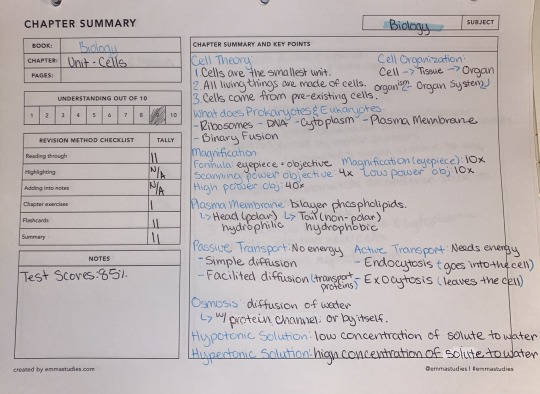 CHAPTER SUMMARY
Biology
SUBJECT
BOOK: Biology
CHAPTER: Unit - Cells
PAGES:
UNDERSTANDING OUT OF 10
1 2 3 4 5 6 7 8 10
REVISION METHOD CHECKLIST TALLY
Reading through ||
Highlighting N/A
Adding into notes N/A
Chapter exercises |
Flashcards ||
Summary ||
NOTES
Test Scores: 85%
CHAPTER SUMMARY AND KEY POINTS
Cell Theory:
1. Cells are the smallest unit.
2. All living things are made of cells.
3. Cells come from pre-existing cells.
Cell Organization:
Cell → Tissue → Organ
organism Organ System
What does Prokaryotes & Eukaryotes
- Ribosomes - DNA - Cytoplasm - Plasma Membrane
- Binary Fusion
Magnification
Formula: eyepiece × objective Magnification (eyepiece): 10x
Scanning power objective: 4x Low power obj: 10x
High power obj: 40x
Plasma Membrane: bilayer phospholipids.
↳ Head (polar) ↳ Tail (non-polar)
hydrophilic hydrophobic
Passive Transport: No energy
- Simple diffusion
- Facilited diffusion (transport
proteins)
Active Transport: Needs energy
- Endocytosis (goes into the cell)
- Exocytosis (leaves the cell)
Osmosis: diffusion of water
↳ w/ protein channel, or by itself.
Hypotonic Solution: low concentration of solute to water
Hypertonic Solution: high concentration of solute to water
created by emmastudies.com
@emmastudies | #emmastudies